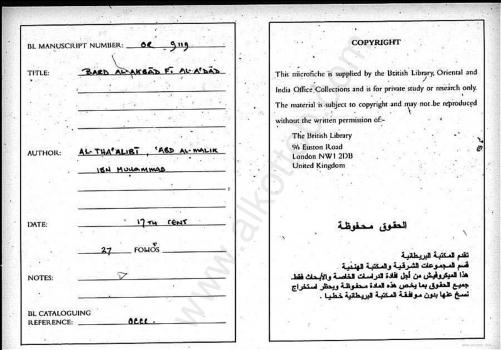 BL MANUSCRIPT NUMBER: OR 9119
TITLE: BARD AL-AKBĀD FĪ AL-A'DĀD
AUTHOR: AL-THA'ALIBĪ, 'ABD AL-MALIK
IBN MUHAMMAD
DATE: 17TH CENT
27 FOLIOS
NOTES:
BL CATALOGUING
REFERENCE:
COPYRIGHT
This microfiche is supplied by the British Library, Oriental and
India Office Collections and is for private study or research only.
The material is subject to copyright and may not be reproduced
without the written permission of:-
The British Library
96 Euston Road
London NW1 2DB
United Kingdom
الحقوق محفوظة
تقدم المكتبة البريطانية
قسم المجموعات الشرقية والمكتبة الهندية
هذا الميكروفيش من أجل افادة الدراسات الخاصة والأبحاث فقط.
جميع الحقوق بما يخص هذه المادة محفوظة ويحظر استخراج
نسخ عنها بدون موافقة المكتبة البريطانية خطيا .